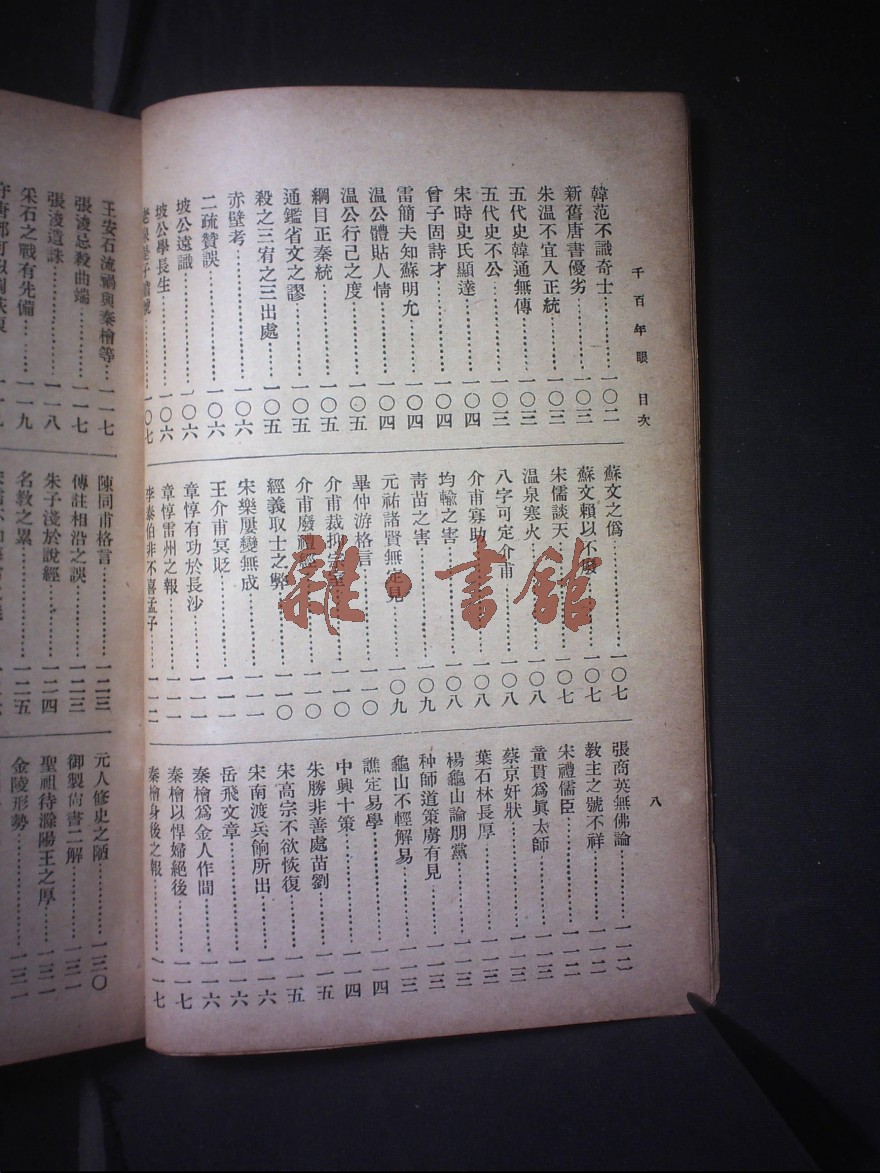 千百年眼 目次
八
韓范不識奇士⋯⋯一〇二
新舊唐書優劣⋯⋯一〇三
朱温不宜入正統⋯⋯一〇三
五代史韓通無傳⋯⋯一〇三
五代史不公⋯⋯一〇三
宋時史氏顯達⋯⋯一〇四
曾子固詩才⋯⋯一〇四
雷簡夫知蘇明允⋯⋯一〇四
温公體貼人情⋯⋯一〇四
温公行己之度⋯⋯一〇五
綱目正秦統⋯⋯一〇五
通鑑省文之謬⋯⋯一〇五
殺之三宥之三出處⋯⋯一〇五
赤壁考⋯⋯一〇六
二疏贊誤⋯⋯一〇六
坡公遠識⋯⋯一〇六
坡公學長生⋯⋯一〇六
⋯⋯一〇七
蘇文之僞⋯⋯一〇七
蘇文賴以不廢⋯⋯一〇七
宋儒談天⋯⋯一〇七
温泉寒火⋯⋯一〇八
八字可定介甫⋯⋯一〇八
介甫寡助⋯⋯一〇八
均輸之害⋯⋯一〇八
靑苗之害⋯⋯一〇九
元祐諸賢無定見⋯⋯一〇九
畢仲游格言⋯⋯一一〇
介甫裁抑宗室⋯⋯一一〇
介甫廢禮經⋯⋯一一〇
經義取士之弊⋯⋯一一〇
宋樂屢變無成⋯⋯一一一
王介甫冥貶⋯⋯一一一
章惇有功於長沙⋯⋯一一一
章惇雷州之報⋯⋯一一一
李泰伯非不喜孟子⋯⋯一一二
張商英無佛論⋯⋯一一二
教主之號不祥⋯⋯一一二
宋禮儒臣⋯⋯一一二
童貫爲眞太師⋯⋯一一三
蔡京奸狀⋯⋯一一三
葉石林長厚⋯⋯一一三
楊龜山論朋黨⋯⋯一一三
种師道策虜有見⋯⋯一一三
龜山不輕解易⋯⋯一一三
譙定易學⋯⋯一一四
中興十策⋯⋯一一四
朱勝非善處苗劉⋯⋯一一五
宋高宗不欲恢復⋯⋯一一五
宋南渡兵餉所出⋯⋯一一六
岳飛文章⋯⋯一一六
秦檜爲金人作間⋯⋯一一六
秦檜以悍婦絕後⋯⋯一一七
秦檜身後之報⋯⋯一一七
王安石流禍與秦檜等⋯⋯一一七
張浚忌殺曲端⋯⋯一一七
張浚遺誅⋯⋯一一八
采石之戰有先備⋯⋯一一九
陳同甫格言⋯⋯一二三
傳註相沿之誤⋯⋯一二三
朱子淺於說經⋯⋯一二四
名教之累⋯⋯一二五
元人修史之陋⋯⋯一三〇
御製尚書二解⋯⋯一三一
聖祖待滁陽王之厚⋯⋯一三一
金陵形勢⋯⋯一三一
雜·書館